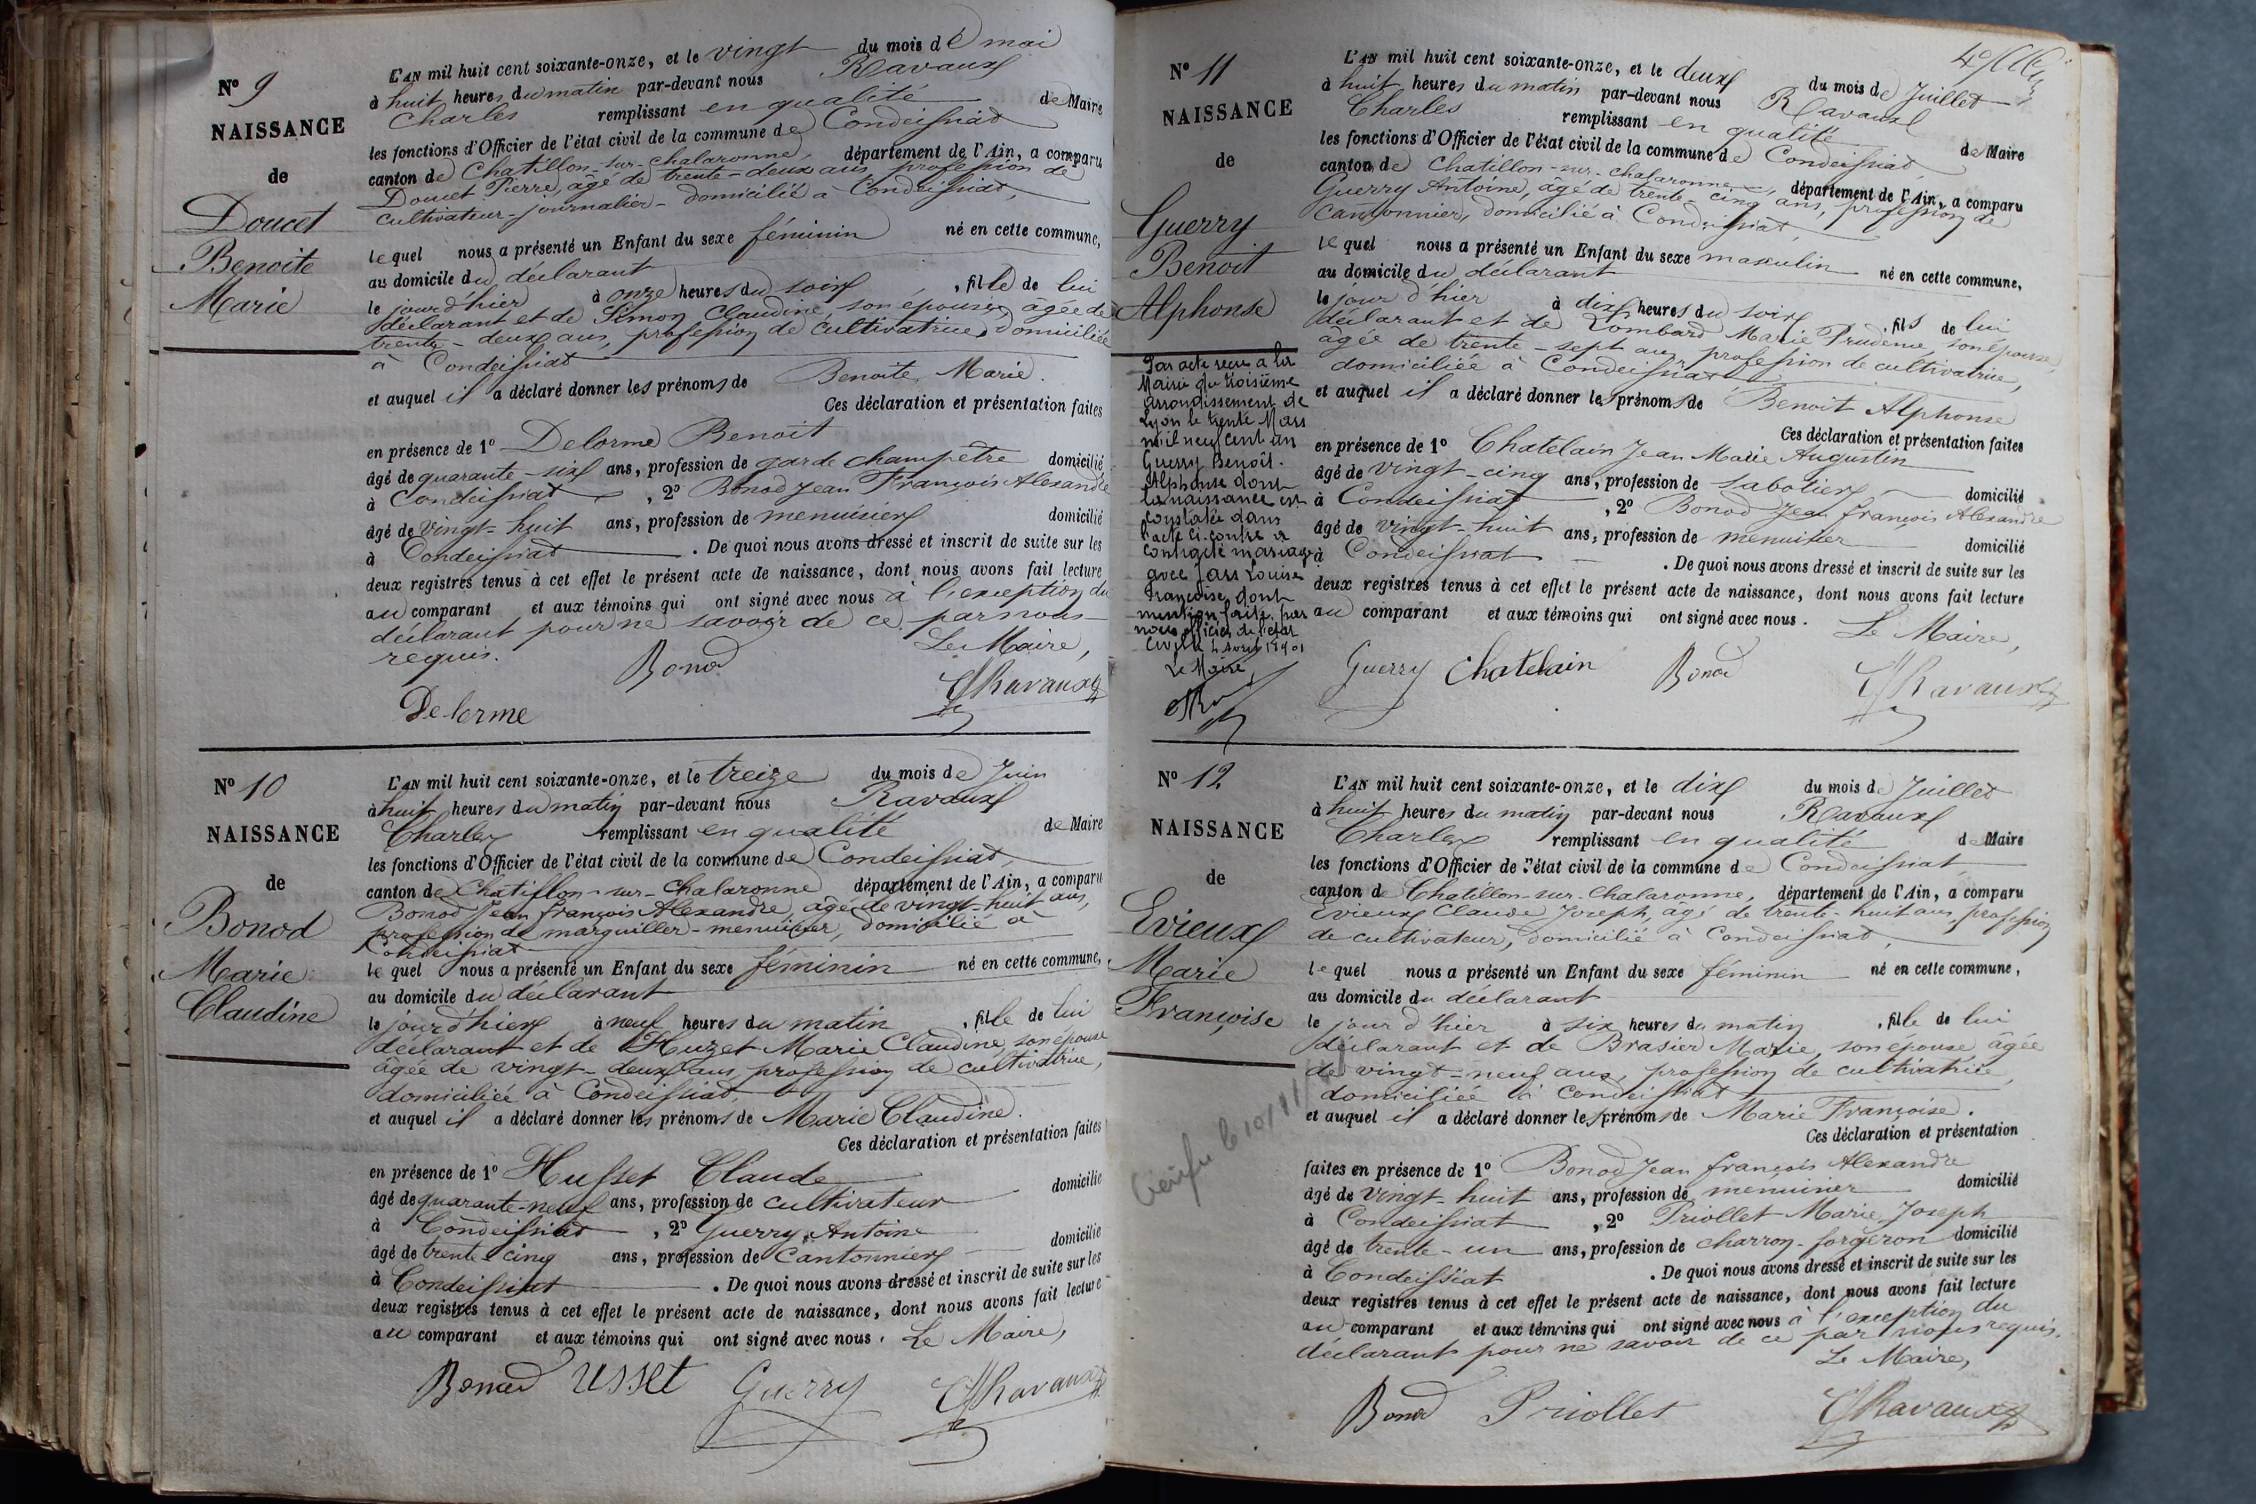 N° 9
NAISSANCE
de
Doucet
Benoite
Marie
L'AN mil huit cent soixante-onze, et le vingt du mois de mai
à huit heures du matin par-devant nous Ravaux
Charles remplissant en qualité de Maire
les fonctions d'Officier de l'état civil de la commune de Condeissiat
canton de Chatillon-sur-Chalaronne, département de l'Ain, a comparu
Doucet Pierre, âgé de trente-deux ans, profession de
cultivateur-journalier - domicilié à Condeissiat,
lequel nous a présenté un Enfant du sexe féminin né en cette commune,
au domicile du déclarant
le jour d'hier à onze heures du soir, fille de lui
déclarant et de Simon Claudine, son épouse, âgée de
trente-deux ans, profession de cultivatrice, domiciliée
à Condeissiat
et auquel il a déclaré donner les prénoms de Benoite Marie.
Ces déclaration et présentation faites
en présence de 1° Delorme Benoit
âgé de quarante-six ans, profession de garde champetre domicilié
à Condeissiat, 2° Bonod Jean François Alexandre
âgé de vingt-huit ans, profession de menuisier domicilié
à Condeissiat. De quoi nous avons dressé et inscrit de suite sur les
deux registres tenus à cet effet le présent acte de naissance, dont nous avons fait lecture
au comparant et aux témoins qui ont signé avec nous à l'exception du
déclarant pour ne savoir de ce par nous
requis. Le Maire,
Bonod
Delorme CRavaux
N° 10
NAISSANCE
de
Bonod
Marie
Claudine
L'AN mil huit cent soixante-onze, et le treize du mois de Juin
à huit heures du matin par-devant nous Ravaux
Charles remplissant en qualité de Maire
les fonctions d'Officier de l'état civil de la commune de Condeissiat,
canton de Chatillon-sur-Chalaronne département de l'Ain, a comparu
Bonod Jean françois Alexandre âgé de vingt-huit ans,
profession de marguiller-menuisier, domicilié à
Condeissiat
lequel nous a présenté un Enfant du sexe féminin né en cette commune,
au domicile du déclarant
le jour d'hier à neuf heures du matin, fille de lui
déclarant et de Huzet Marie Claudine, son épouse
âgée de vingt-deux ans, profession de cultivatrice,
domiciliée à Condeissiat,
et auquel il a déclaré donner les prénoms de Marie Claudine.
Ces déclaration et présentation faites
en présence de 1° Husset Claude
âgé de quarante-neuf ans, profession de cultivateur domicilié
à Condeissiat, 2° Guerry Antoine
âgé de trente cinq ans, profession de Cantonnier domicilié
à Condeissiat. De quoi nous avons dressé et inscrit de suite sur les
deux registres tenus à cet effet le présent acte de naissance, dont nous avons fait lecture
au comparant et aux témoins qui ont signé avec nous. Le Maire,
Bonod Usset Guerry CRavaux
N° 11
NAISSANCE
de
Guerry
Benoit
Alphonse
Par acte reçu à la
Mairie du troisième
arrondissement de
Lyon le trente Mars
mil neuf cent un
Guerry Benoît
Alphonse dont
la naissance est
constatée dans
l'acte ci-contre a
contracté mariage
avec Jars Louise
Françoise dont
mention faite par
nous officier de l'état
civil le 4 Avril 1901
Le Maire,
L'AN mil huit cent soixante-onze, et le deux du mois de Juillet
à huit heures du matin par-devant nous Ravaux
Charles remplissant en qualité de Maire
les fonctions d'Officier de l'état civil de la commune de Condeissiat
canton de Chatillon-sur-chalaronne, département de l'Ain, a comparu
Guerry Antoine, âgé de trente-cinq ans, profession de
cantonnier, domicilié à Condeissiat,
lequel nous a présenté un Enfant du sexe masculin né en cette commune,
au domicile du déclarant
le jour d'hier à dix heures du soir, fils de lui
déclarant et de Lombard Marie Prudence, son épouse,
âgée de trente-sept ans, profession de cultivatrice,
domiciliée à Condeissiat
et auquel il a déclaré donner les prénoms de Benoit Alphonse
Ces déclaration et présentation faites
en présence de 1° Chatelain Jean Marie Augustin
âgé de vingt-cinq ans, profession de sabotier domicilié
à Condeissiat, 2° Bonod Jean françois Alexandre
âgé de vingt-huit ans, profession de menuisier domicilié
à Condeissiat. De quoi nous avons dressé et inscrit de suite sur les
deux registres tenus à cet effet le présent acte de naissance, dont nous avons fait lecture
au comparant et aux témoins qui ont signé avec nous. Le Maire,
Guerry Chatelain Bonod CRavaux
N° 12
NAISSANCE
de
Evieux
Marie
Françoise
Vérifié le 10/11/
L'AN mil huit cent soixante-onze, et le dix du mois de Juillet
à huit heures du matin par-devant nous Ravaux
Charles remplissant en qualité de Maire
les fonctions d'Officier de l'état civil de la commune de Condeissiat
canton de Chatillon-sur-Chalaronne, département de l'Ain, a comparu
Evieux Claude Joseph, âgé de trente-huit ans, profession
de cultivateur, domicilié à Condeissiat,
lequel nous a présenté un Enfant du sexe féminin né en cette commune,
au domicile du déclarant
le jour d'hier à six heures du matin, fille de lui
déclarant et de Brasier Marie, son épouse âgée
de vingt-neuf ans, profession de cultivatrice,
domiciliée à Condeissiat
et auquel il a déclaré donner les prénoms de Marie Françoise.
Ces déclaration et présentation
faites en présence de 1° Bonod Jean françois Alexandre
âgé de vingt-huit ans, profession de menuisier domicilié
à Condeissiat, 2° Priollet Marie Joseph
âgé de trente-un ans, profession de charron-forgeron domicilié
à Condeissiat. De quoi nous avons dressé et inscrit de suite sur les
deux registres tenus à cet effet le présent acte de naissance, dont nous avons fait lecture
au comparant et aux témoins qui ont signé avec nous à l'exception du
déclarant pour ne savoir de ce par nous requis.
Le Maire,
Bonod Priollet CRavaux